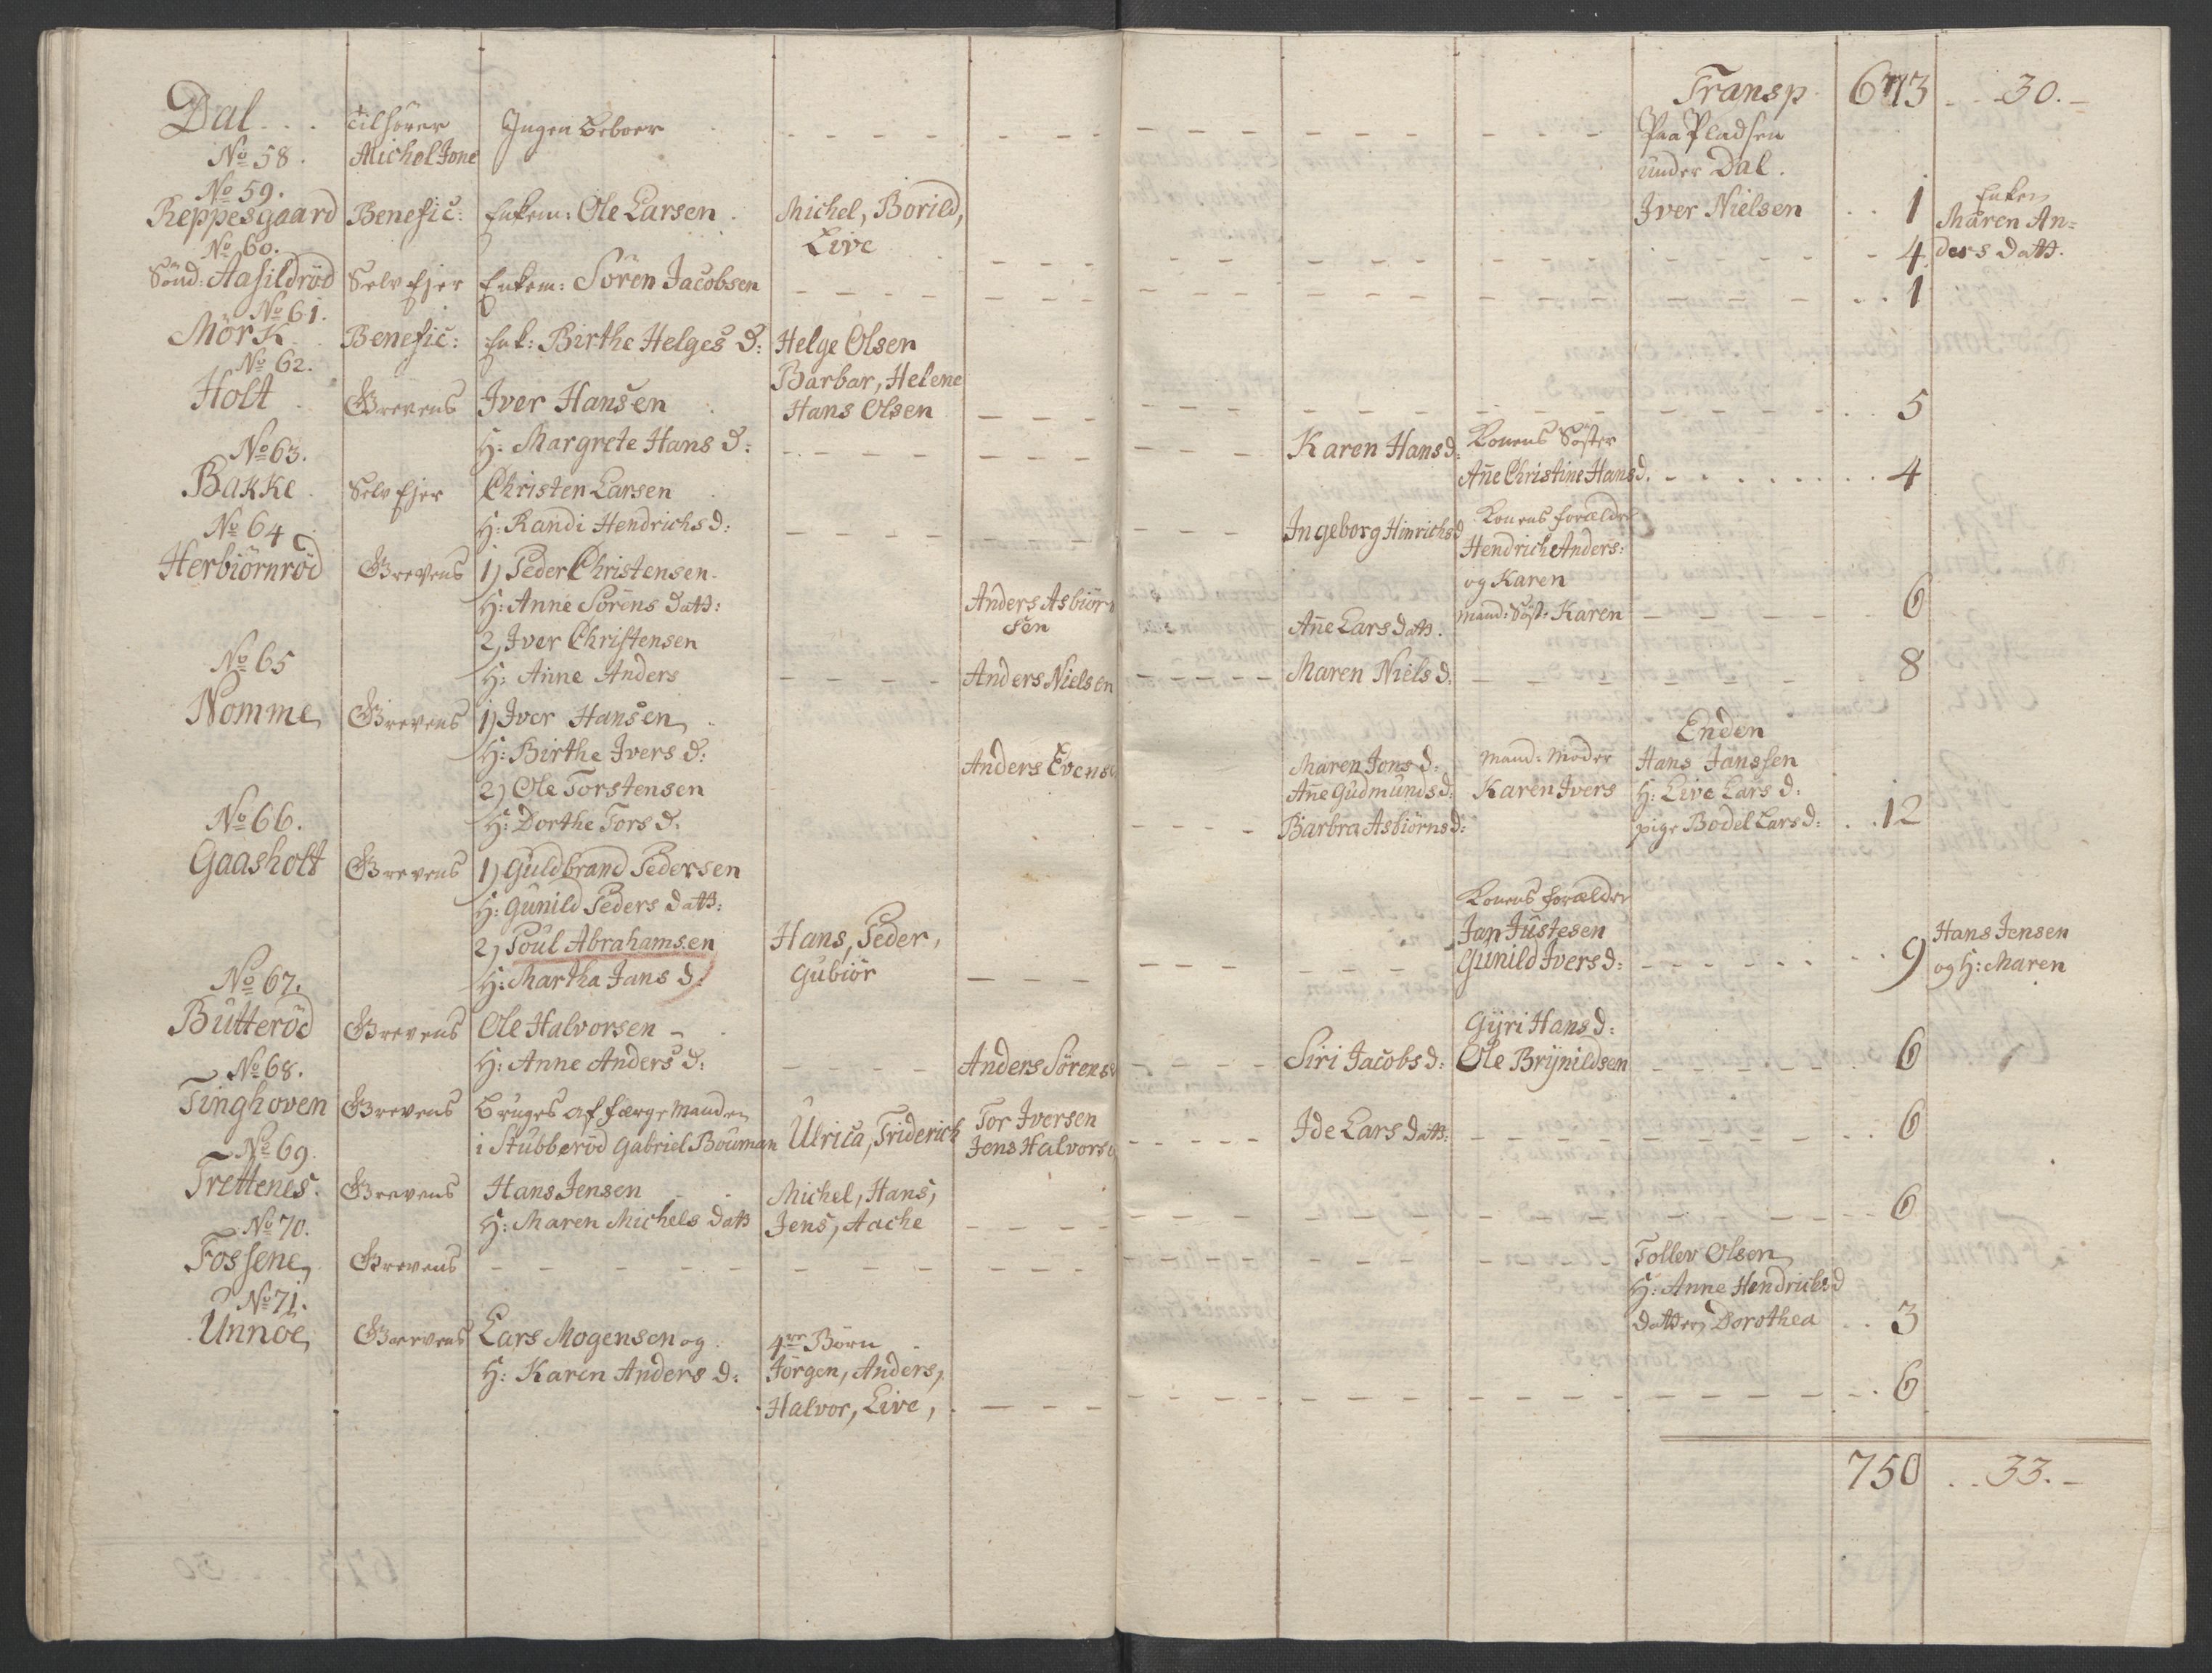 Transp. 673 . . 30. -
Dal . . . Tilhører Ingen Beboer - - - - Paa Pladsen
No 58. Michel Jone under Dal.
No 59.
Reppesgaard Benefic: Enkem: Ole Larsen. Michel, Borild, Iver Nielsen . . 1 Enken
Live - - - - 4 Maren An=
ders Datt.
No 60.
Sönd: Aasildröd Selv Ejer Enkem: Sören Jacobsen - - - - 1
No 61.
Mörk . Benefic: Enk: Birthe Helges D: Helge Olsen
Barbar, Helene
Hans Olsen - - - - 5
No 62.
Holt . Grevens Iver Hansen
H: Margrete Hans D: - - - - Karen Hans d: Konens Söster
Añe Christine Hans d. - - - - 4
No 63.
Bakke . Selv Ejer Christen Larsen
H: Randi Hendrichs d: - - - - Ingeborg Hinrichs d Konens forældre
Hendrich Anders:
og Karen
Mand: Söst: Karen - - - - 6
No 64
Herbiörnröd Grevens 1) Peder Christensen.
H: Anne Sörens Datt: Anders Asbiörn
sen Añe Lars Datt.
2) Iver Christensen
H: Anne Anders - - - - Anders Nielsen - - - - Maren Niels d. - - - - 8
No 65
Nomme Grevens 1) Iver Hansen
H: Birthe Ivers d: Anders Evens Maren Jons d: Mand: Moder Enden
2) Ole Torstensen Añe Gudmunds d: Karen Ivers Hans Janssen
H: Dorthe Tors d. - - - - Barbra Asbiörns d: H: Live Lars d:
pige Bodel Lars d: . . 12
No 66.
Gaasholt Grevens 1) Guldbrand Pedersen
H: Gunild Peders Datt: Konens forældre
2) Poul Abrahamsen Hans, Peder, Jan Justesen Hans Jensen
H: Martha Jans d: Gubiör - - - - Gunild Ivers d: - - - - 9 og H: Maren
No 67.
Butteröd Grevens Ole Halvorsen - Gyri Hans d:
H: Anne Anders d: - - - - Anders Sörens - - - - Siri Jacobs d: Ole Brynildsen - - - - 6
No 68.
Tinghoven Grevens Bruges af færge Manden
i Stubberöd Gabriel Bouman Ulrica, Friderich Tor Iversen
Jens Halvors - - - - Ide Lars Datt: - - - - 6
No 69.
Trettenes. Grevens Hans Jensen Michel, Hans,
H: Maren Michels Datt Jens, Aache - - - - 6
No 70.
Fossene Grevens - - - - Tollev Olsen
H: Anne Hendrichs d
datter Dorothea . . 3
No 71.
Unnöe Grevens Lars Mogensen og 4re Börn
H: Karen Anders d: Jörgen, Anders,
Halvor, Live, - - - - 6
750 . . 33. -